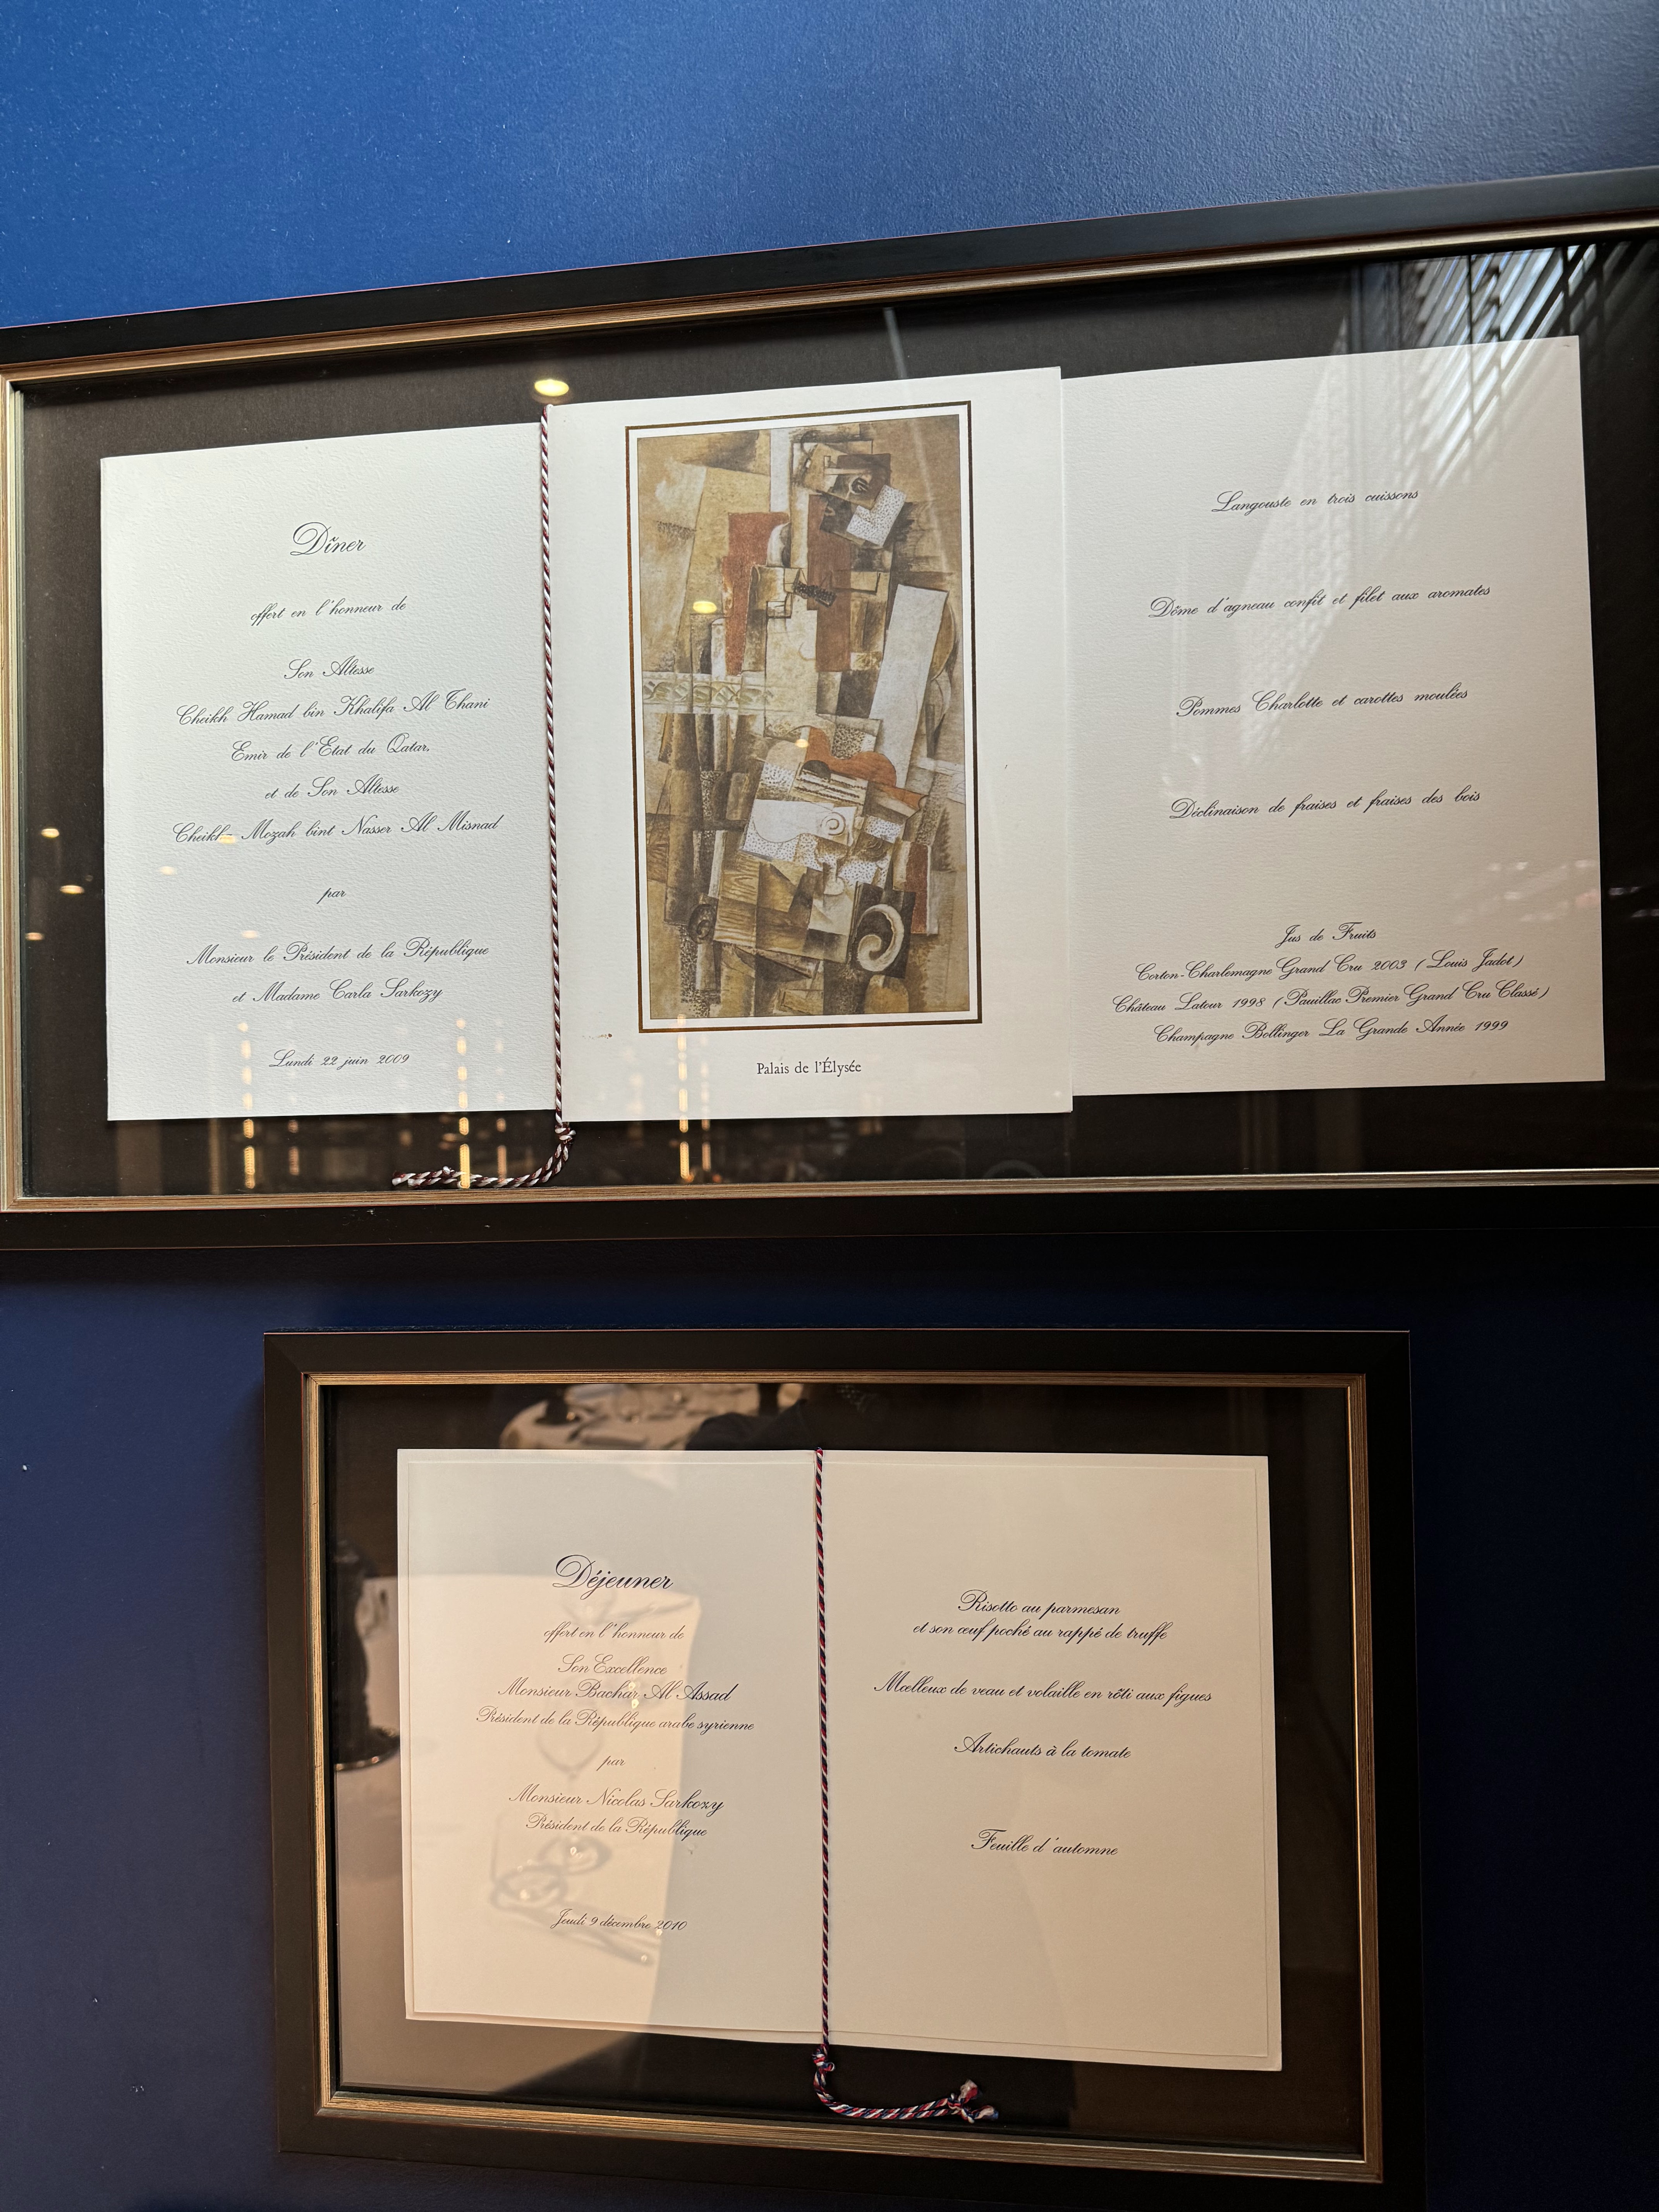 Dîner
offert en l'honneur de
Son Altesse
Cheikh Hamad bin Khalifa Al Thani
Emir de l'Etat du Qatar,
et de Son Altesse
Mozah bint Nasser Al Misnad
par
Monsieur le Président de la République
et Madame Carla Sarkozy
Lundi 22 juin 2009
Palais de l'Élysée
Langouste en trois cuissons
Dôme d'agneau confit et filet aux aromates
Pommes Charlotte et carottes moulées
Déclinaison de fraises et fraises des bois
Jus de Fruits
Corton-Charlemagne Grand Cru 2003 (Louis Jadot)
Château Latour 1998 (Pauillac Premier Grand Cru Classé)
Champagne Bollinger La Grande Année 1999
Déjeuner
offert en l'honneur de
Son Excellence
Monsieur Bachar Al Assad
Président de la République arabe syrienne
par
Monsieur Nicolas Sarkozy
Président de la République
Jeudi 9 décembre 2010
Risotto au parmesan
et son œuf poché au rappé de truffe
Mœlleux de veau et volaille en rôti aux figues
Artichauts à la tomate
Feuille d'automne